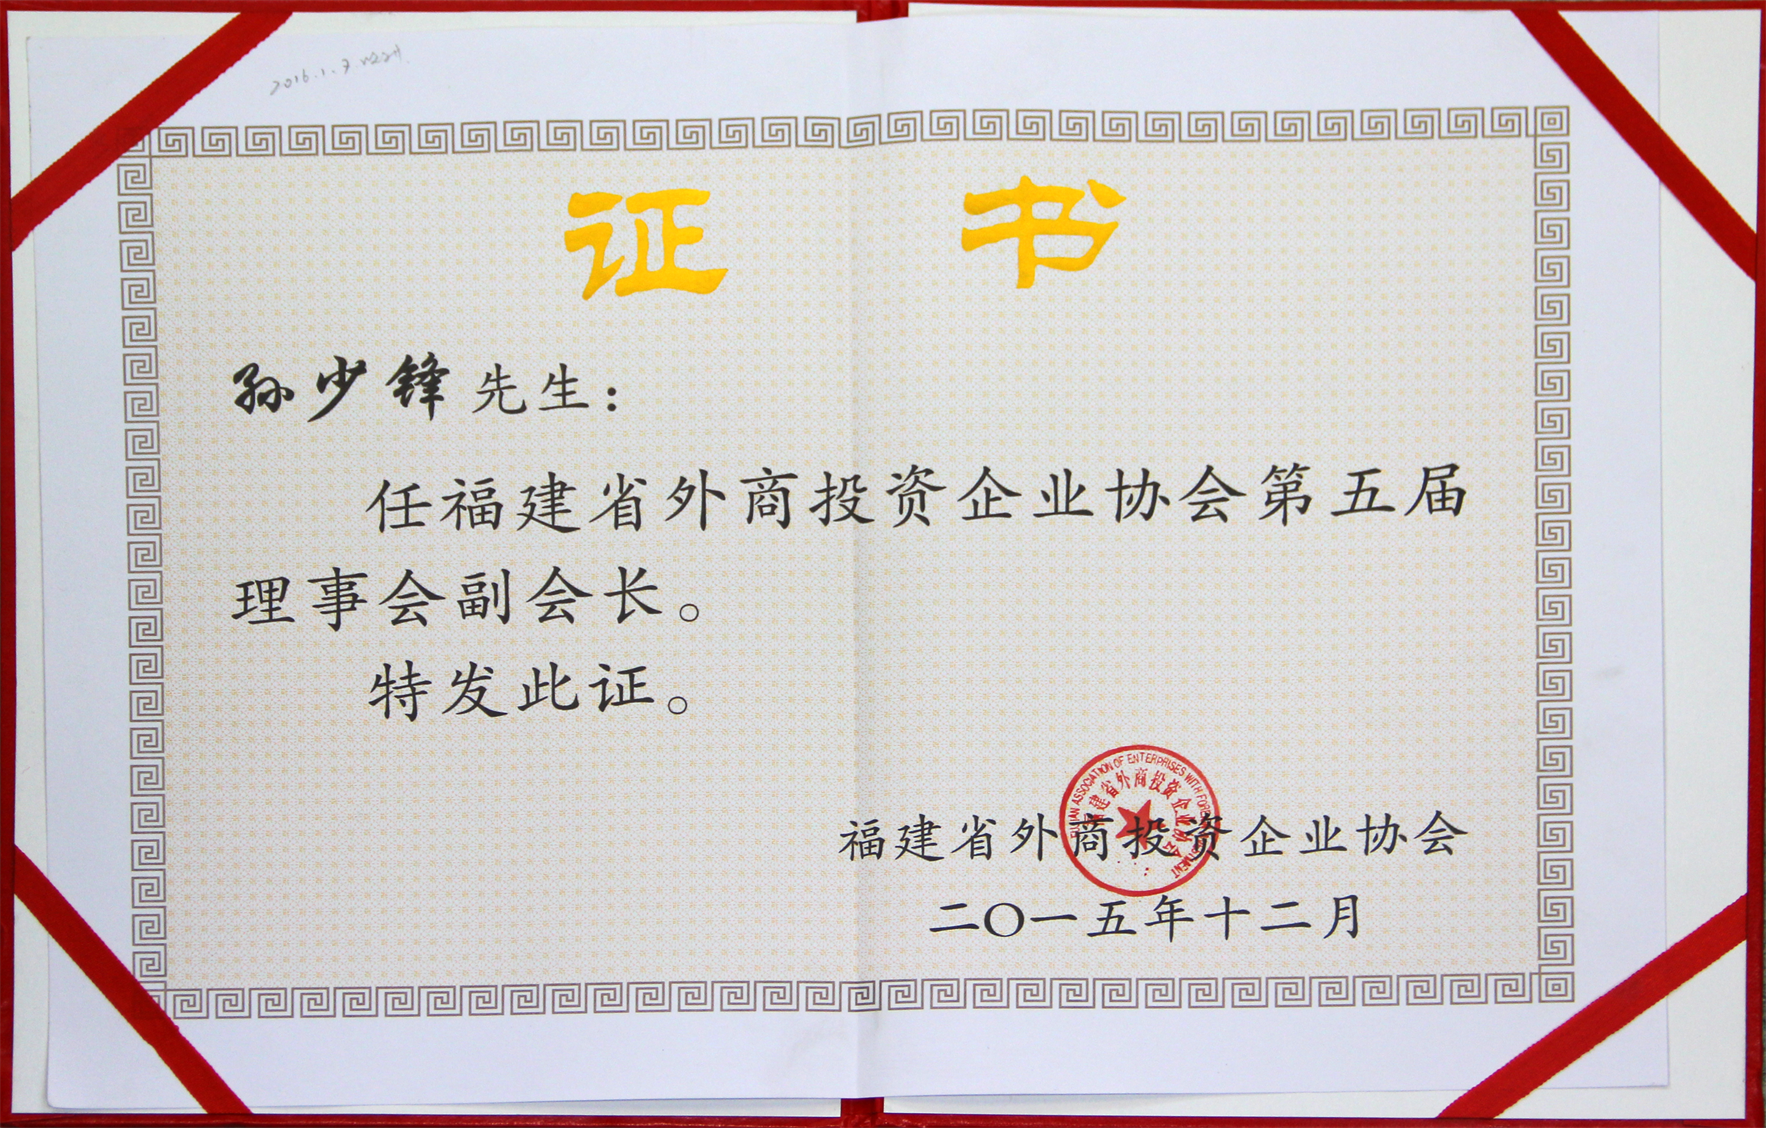 2016.1.7.
证 书
孙少锋先生：
任福建省外商投资企业协会第五届
理事会副会长。
特发此证。
FUJIAN ASSOCIATION OF ENTERPRISES WITH FOREIGN INVESTMENT
福建省外商投资企业协会
福建省外商投资企业协会
二〇一五年十二月